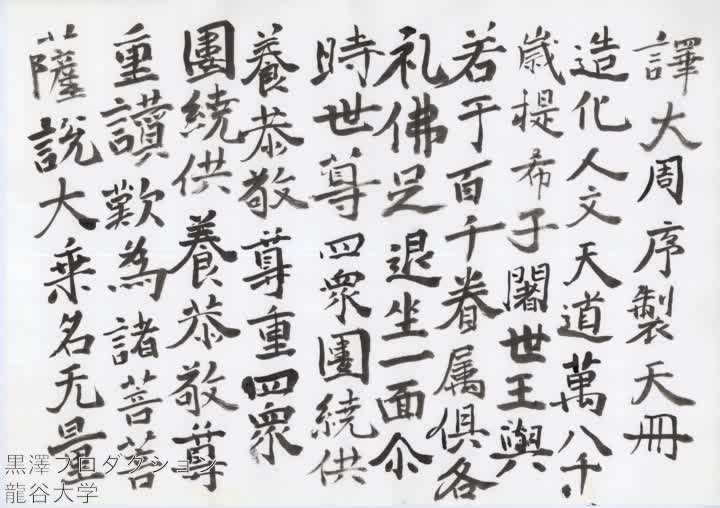 譯大周序製天冊
造化人文天道萬八千
嵗提希子闍世王與
若于百千眷属俱各
礼佛足退坐一面尒
時世尊四衆圍繞供
養恭敬尊重四衆
圍繞供養恭敬尊
重讃歎為諸菩菩
薩說大乗名无量
黒澤プロダクション
龍谷大学